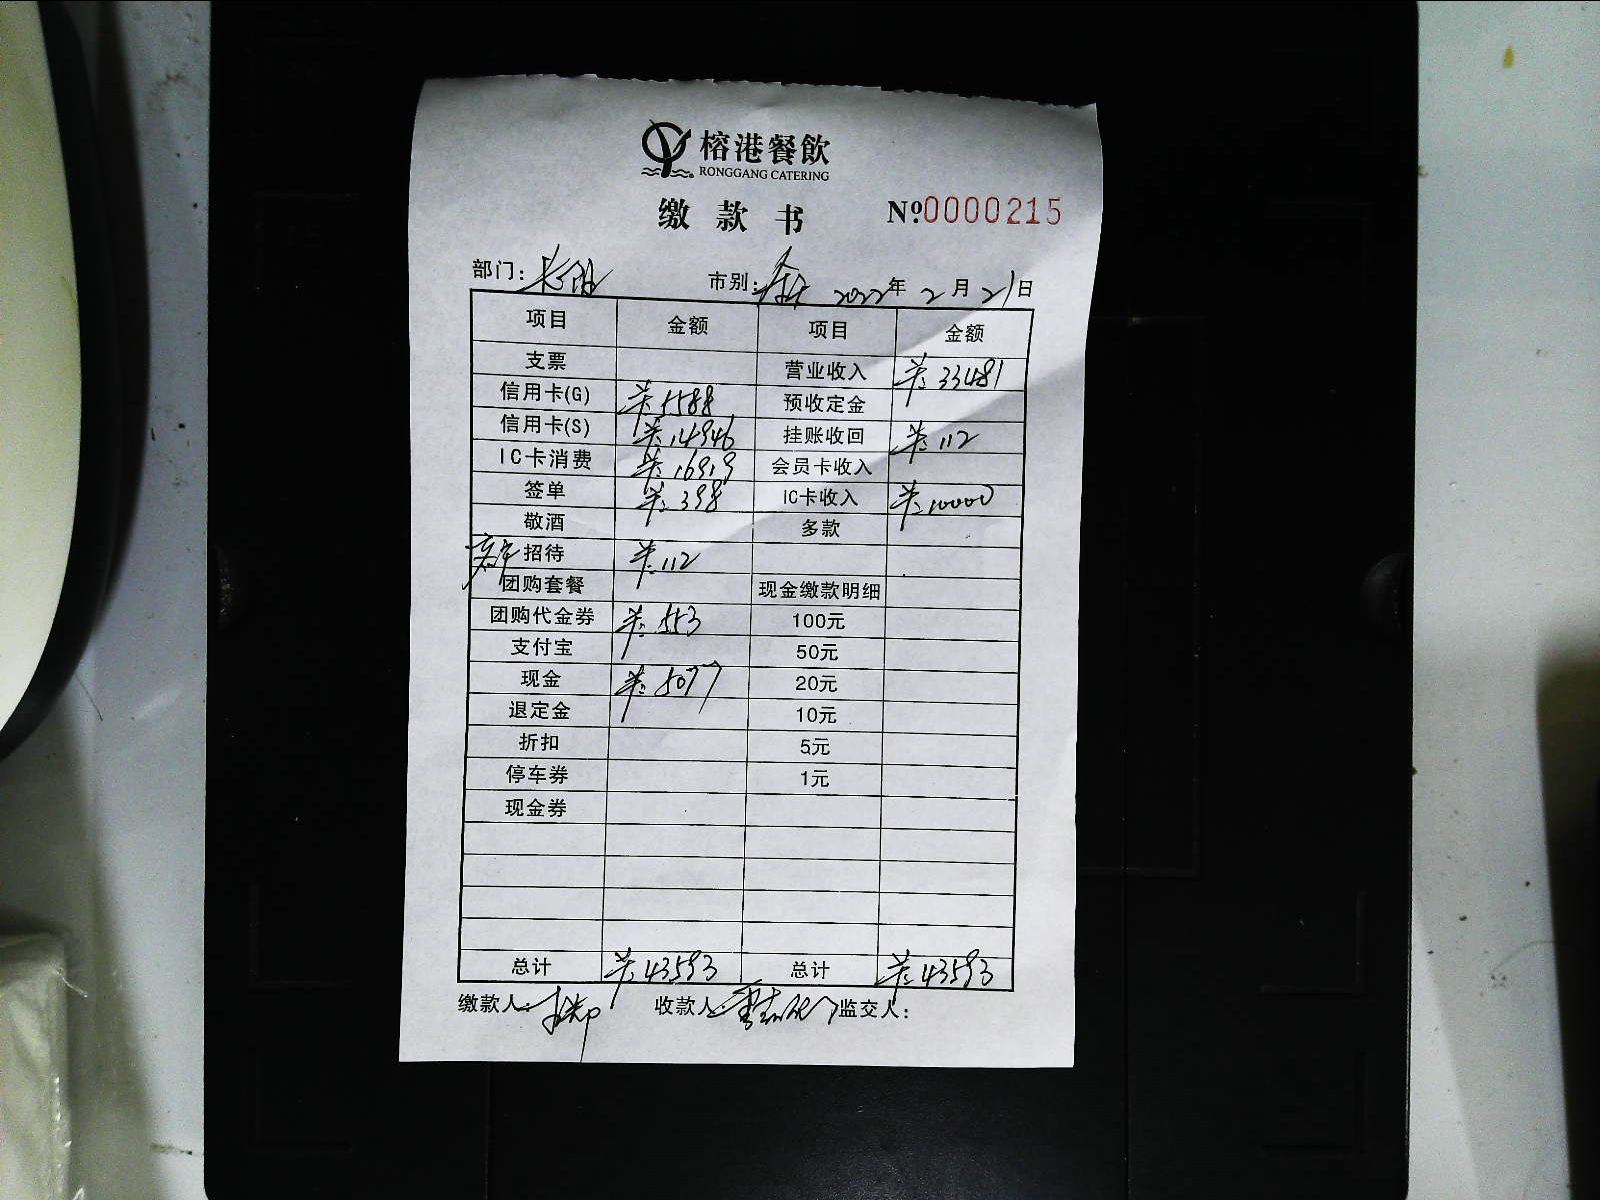 榕港餐飲
RONGGANG CATERING
缴款书 Nº0000215
部门: 市别: 2022年 2月 21日
项目 金额 项目 金额
支票 营业收入 ¥:33481
信用卡(G) ¥:5588 预收定金
信用卡(S) ¥:14946 挂账收回 ¥:112
IC卡消费 ¥:16919 会员卡收入
签单 ¥:398 IC卡收入 ¥:10000
敬酒 多款
招待 ¥:112
团购套餐 现金缴款明细
团购代金券 ¥:553 100元
支付宝 50元
现金 ¥:5077 20元
退定金 10元
折扣 5元
停车券 1元
现金券
总计 ¥:43593 总计 ¥:43593
缴款人: 收款人: 监交人: